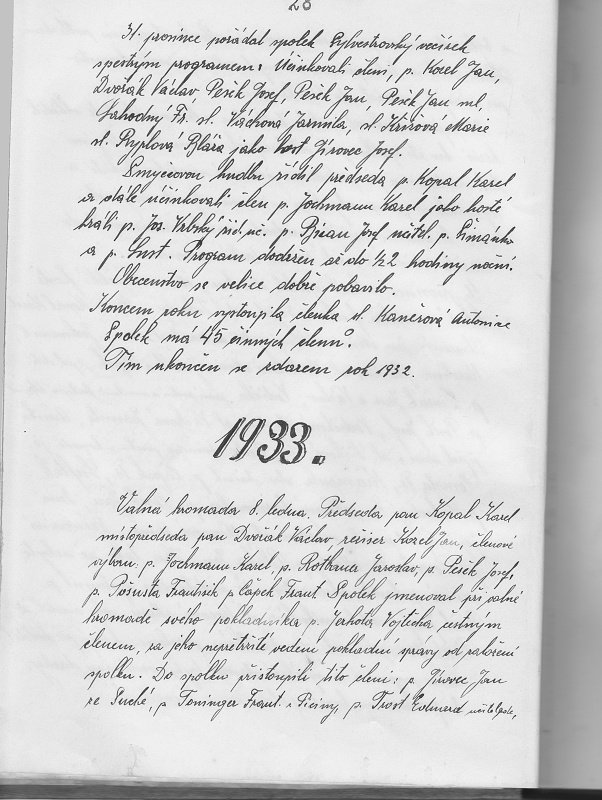 28
31. prosince pořádal spolek Sylvestrovský večírek
spestrým programem: Účinkovali členi, p. Kozel Jan,
Dvořák Václav Pešek Josef, Pešek Jan, Pešek Jan ml,
Lahodný Fr. sl. Váchová Jarmila, sl. Křížová Marie
sl. Ryplová Blára jako host Jírovec Josef.
Smyčcovou hudbu řídil předseda p. Kopal Karel
a stále účinkovali člen p. Jochmann Karel jako hosté
hráli p. Jos. Vrbský říd. uč. p. Brzan Josef učitel. p.
a p. Šust. Program dodržen až do 1/2 hodiny noční.
Obecenstvo se velice dobře pobavilo.
Koncem roku vystoupila členka sl. Kančrová Antonie
Spolek má 45 činných členů.
Tím ukončen se zdarem rok 1932.
1933.
Valná hromada 8. ledna. Předseda pan Kopal Karel
místopředseda pan Dvořák Václav režiser Kozel Jan, členové
výboru: p. Jochmann Karel, p. Rothauer Jaroslav, p. Pešek Josef,
p. Pošusta František p Čápek Frant Spolek jmenoval při valné
hromadě svého pokladníka p. Jerhota Vojtěcha čestným
členem, za jeho nepřetržité vedení pokladní spravy od založení
spolku. Do spolku přistoupili tito členi: p. Jírovec Jan
ze Suché, p Toninger Frant. z Pičiny, p. Trost Edmard učitel